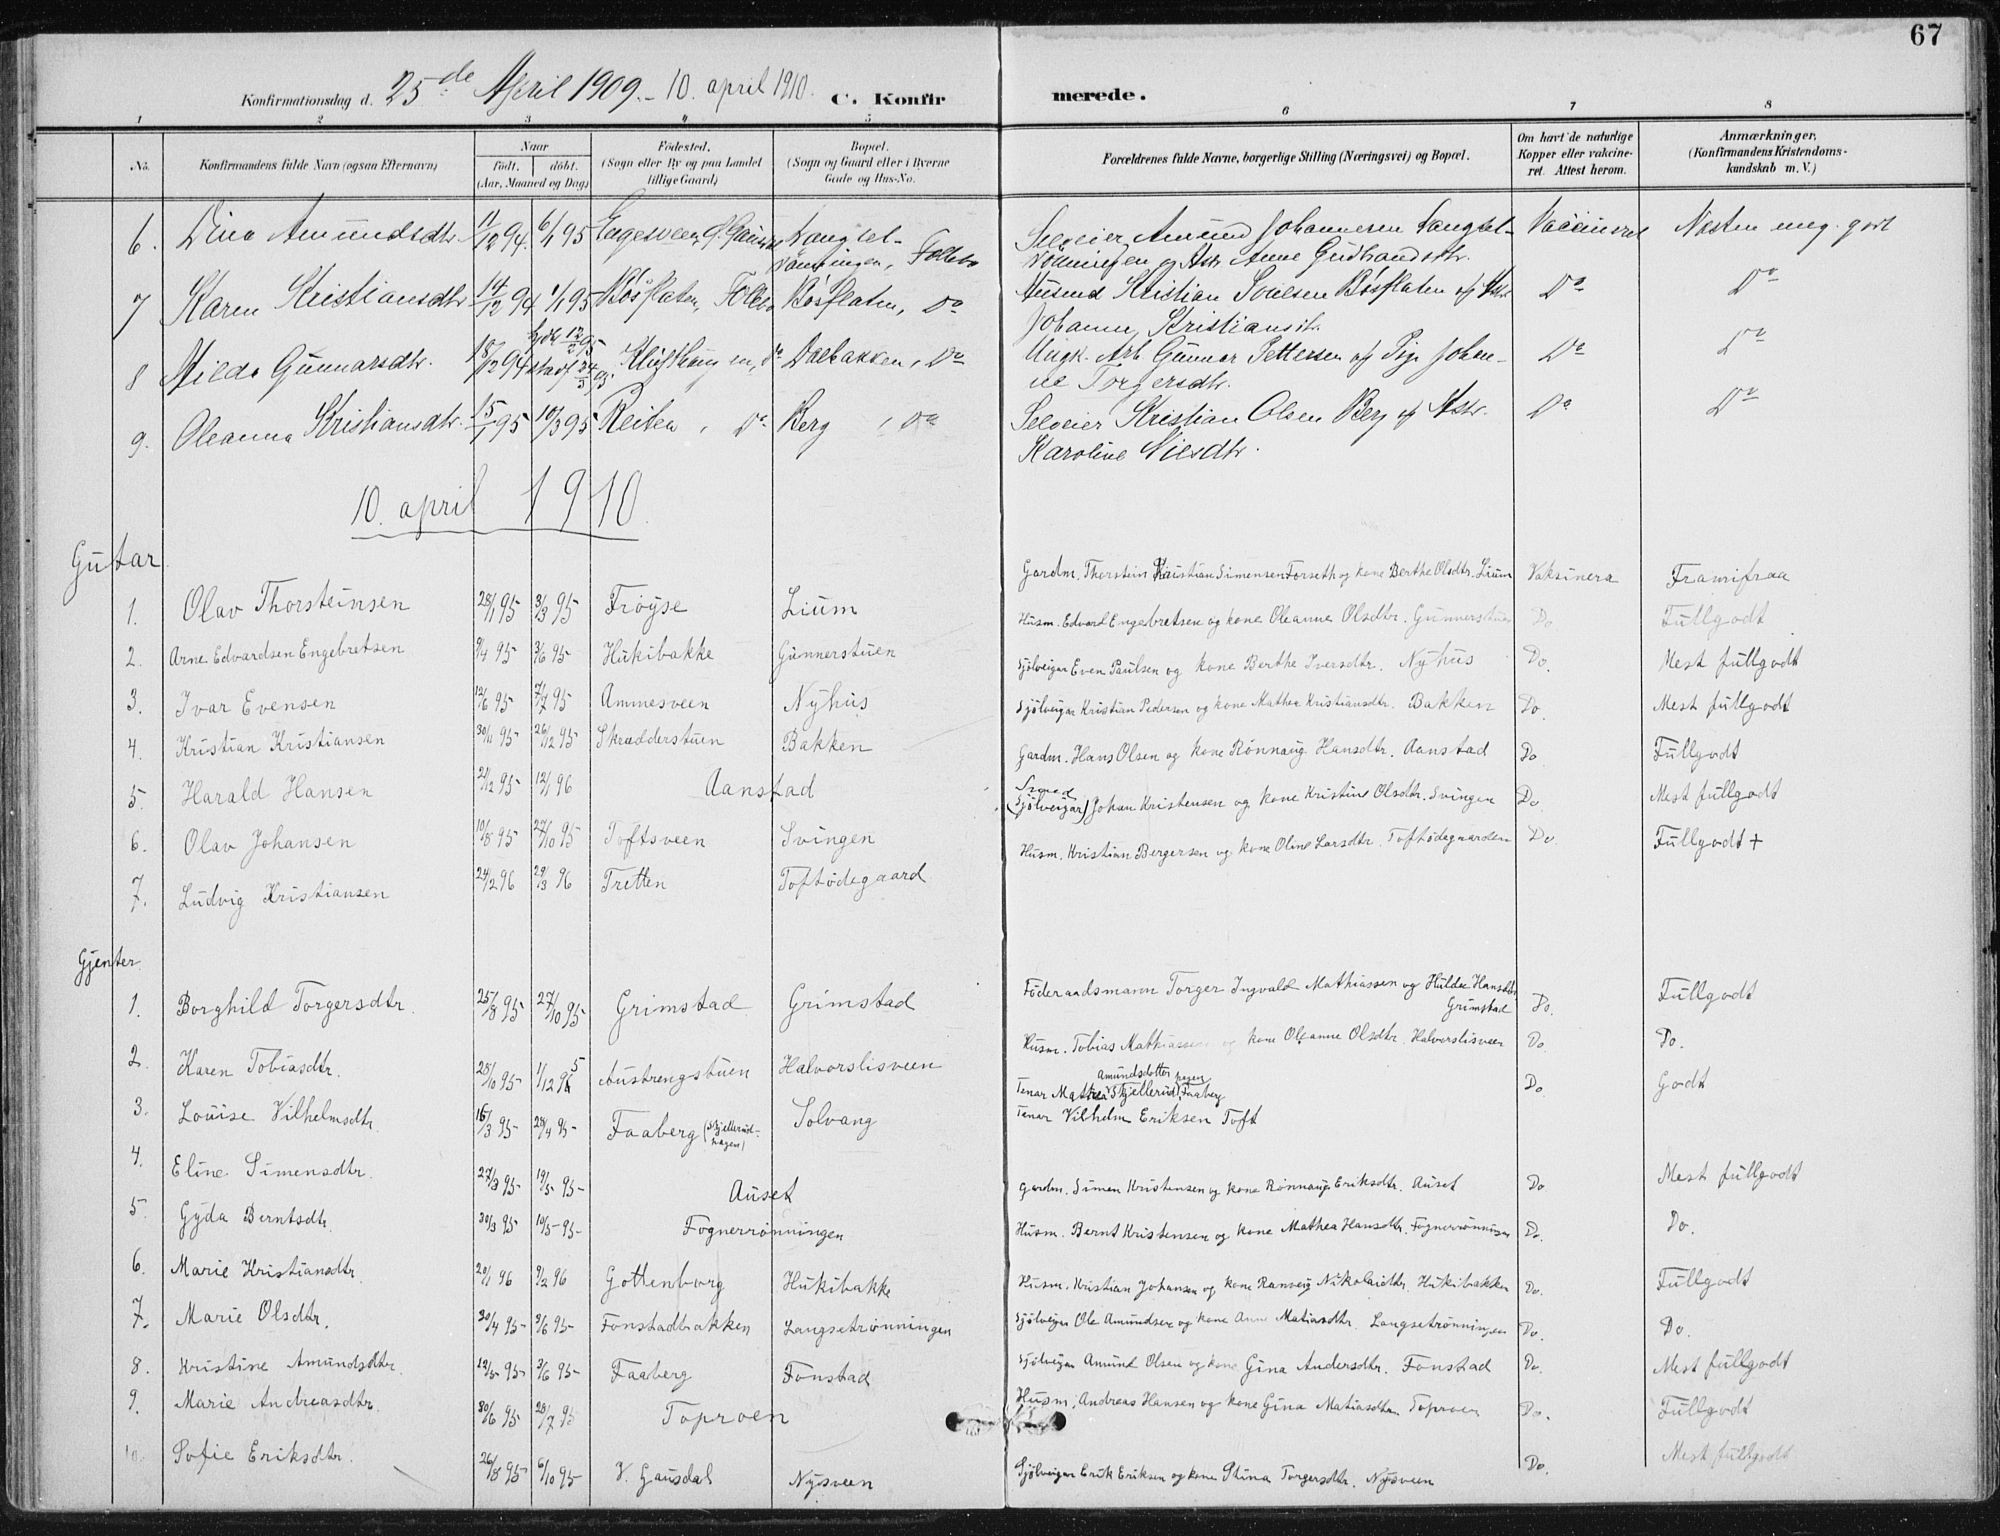 67
Konfirmationsdag d. 25de April 1909. – 10. april 1910. C. Konfirmerede.
1 2 3 4 5 6 7 8
No. Konfirmandens fulde Navn (ogsaa Efternavn) Naar født. døbt. (Aar, Maaned og Dag) Fødested. (Sogn eller By og paa Landet tillige Gaard) Bopæl. (Sogn og Gaard eller i Byerne Gade og Hus-No. Forældrenes fulde Navne, borgerlige Stilling (Næringsvei) og Bopæl. Om havt de naturlige Kopper eller vakcineret. Attest herom. Anmærkninger, (Konfirmandens Kristendomskundskab m. V.)
6. Dina Amundsdtr. 11/12 94. 6/1 95 Amund Johannesen Næsten meg. godt
og Anne Gudbrandsdtr.
7 Karen Kristiansdtr 14/12 94 1/1 95 Bøsflaten, Bøsflaten, Do Kristian Bøsflaten Do Do
Johanne Kristiansdtr.
8 Gunnarsdtr. 18/12 94 Dalbakken, Do Ungk. Arb. Gunnar Pettersen og Pige Johanne Torgersdtr. Do Do
9. Oleanna Kristiansdtr. 15/1 95 10/3 95 Reiten, Do Berg, Do Selveier Kristian Olsen Berg og Hstr. Do Do
Karoline
10. april 1910.
Gutar
1. Olav Thorsteinsen 28/1 95 3/3 95 Frøyse Lium Gardm. Thorstein Kristian Simensen Forseth og kone Berthe Olsdtr. Lium Vaksinera Framifraa
2. Arne Edvardsen Engebretsen 9/4 95 3/6 95 Hukibakke Gunnerstuen Husm. Edvard Engebretsen og kone Oleanne Olsdtr. Gunnerstuen Do Fullgodt
3. Ivar Evensen 12/6 95 7/7 95 Ammesveen Nyhus Sjølveigar Even Paulsen og kone Berthe Iversdtr. Nyhus Do. Mest fullgodt
4. Kristian Kristiansen 30/11 95 26/12 95 Skrædderstuen Bakken Sjølveigar Kristian Pedersen og kone Mathea Kristiansdtr. Bakken Do. Mest fullgodt
5. Harald Hansen 21/12 95 12/1 96 Aanstad Gardm. Hans Olsen og kone Rønnaug Hansdtr. Aanstad Do Fullgodt
6. Olav Johansen 10/8 95 27/10 95 Toftsveen Svingen (Sjølveigar) Johan Kristensen og kone Kristine Olsdtr. Svingen Do Mest fullgodt
7. Ludvig Kristiansen 24/2 96 29/3 96 Tretten Toftødegaard Husm. Kristian Bergersen og kone Oline Larsdtr. Toftødegaarden Do Fullgodt +
Gjenter
1. Borghild Torgersdtr. 25/8 95 27/10 95 Grimstad Grimstad Føderaadsmann Torger Ingvald Mathiassen og Hulda Hansdtr Grimstad Do. Fullgodt
2. Karen Tobiasdtr. 28/10 95 1/12 95 Austrengstuen Halvorslisveen Husm. Tobias Mathiassen og kone Oleanne Olsdtr. Halvorslisveen Do Do.
3. Louise Vilhelmsdtr. 15/3 95 28/4 95 Faaberg (Skjellerudhagen) Solvang Tenar Mathea Amundsdotter Skjellerudhagen, Faaberg Do Godt
Tenar Vilhelm Eriksen Toft
4. Eline Simensdtr. 27/3 95 19/5 95 Auset Gardm. Simen Kristensen og kone Rønnaug Eriksdtr. Auset Do Mest fullgodt
5. Gyda Berntsdtr. 30/3 95 19/5 95 Fognerrønningen Husm. Bernt Kristensen og kone Mathea Hansdtr. Fognerrønningen Do. Do.
6. Marie Kristiansdtr. 20/1 96 9/2 96 Gottenborg Hukibakke Husm. Kristian Johansen og kone Ranveig Nikolaidtr. Hukibakken Do. Fullgodt
7. Marie Olsdtr. 30/4 95 9/6 95 Fonstadbakken Langsetrønningen Sjølveigar Ole Amundsen og kone Anne Matiasdtr. Langsetrønningen Do. Do.
8. Kristine Amundsdtr. 12/5 95 3/6 95 Faaberg Fonstad Sjølveigar Amund Olsen og kone Gina Andersdtr. Fonstad Do. Mest fullgodt
9. Marie Andreasdtr. 30/6 95 28/7 95 Toproen Husm. Andreas Hansen og kone Gina Matiasdtr. Toproen Do. Fullgodt
10. Sofie Eriksdtr. 26/8 95 6/10 95 V. Gausdal Nysveen Sjølveigar Erik Eriksen og kone Stina Torgersdtr. Nysveen Do. Mest fullgodt